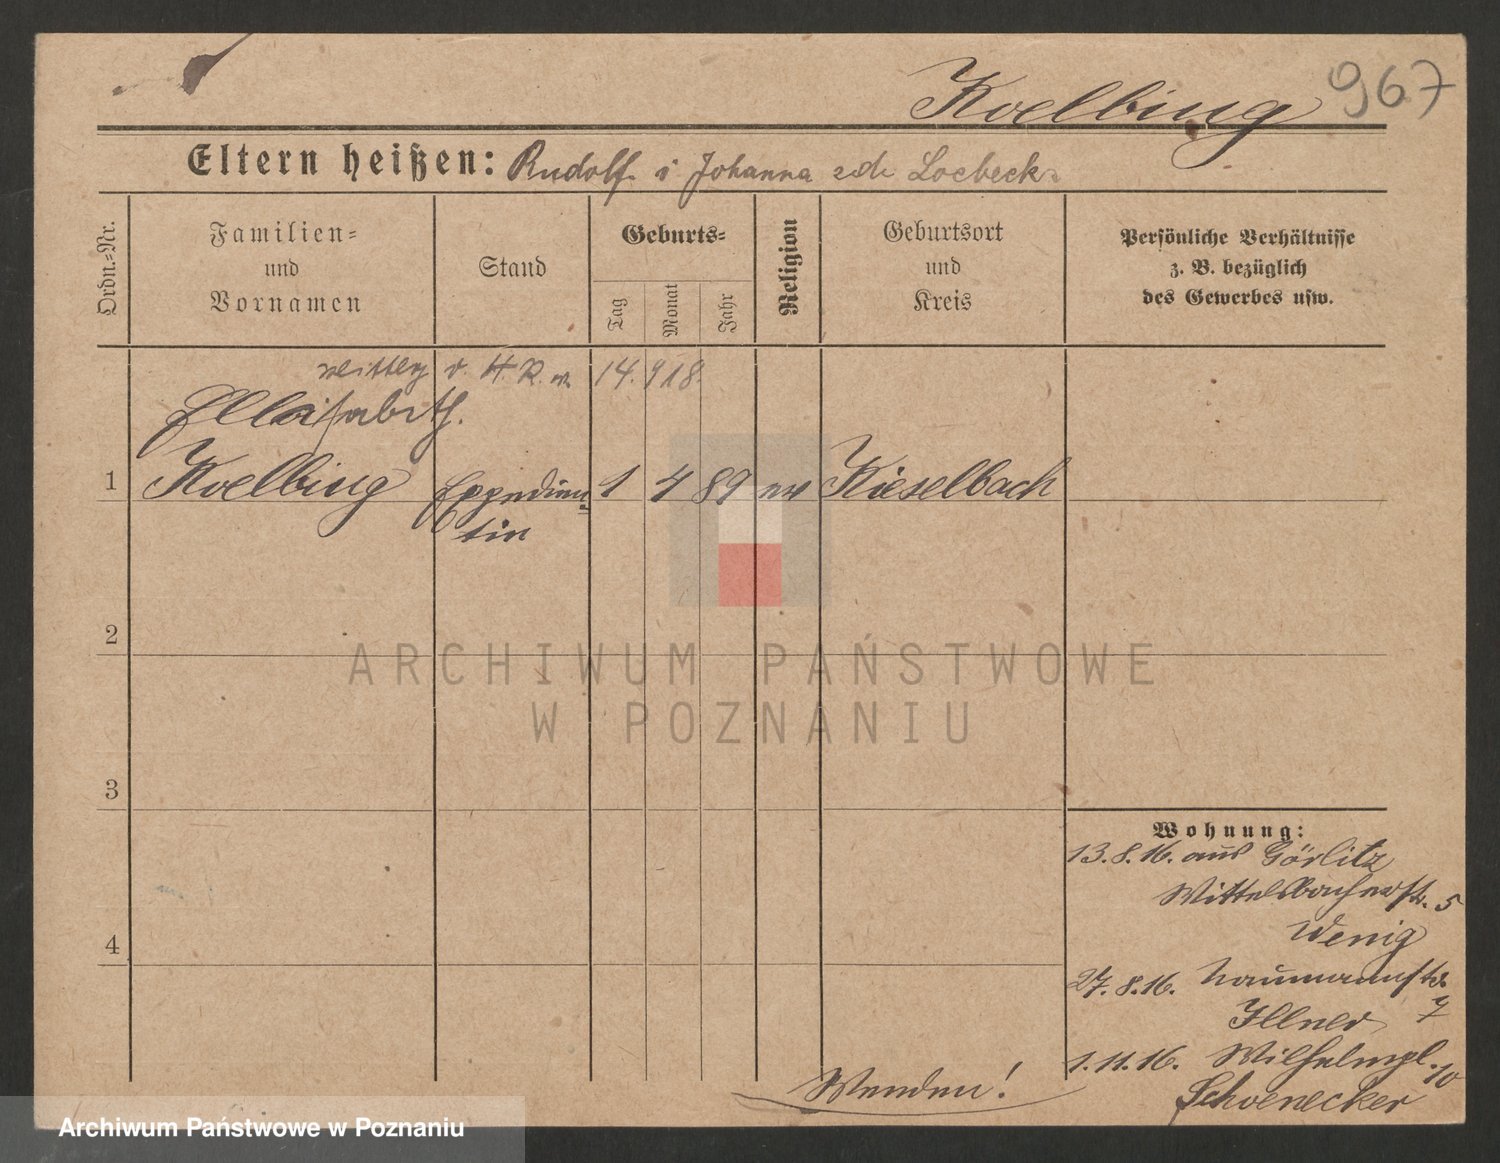 Koelbing 967
Eltern heißen: Rudolf i Johanna zdr Loebeck
Ordn.-Nr.
Familien-
und
Vornamen
Stand
Geburts-
Tag
Monat
Jahr
Religion
Geburtsort
und
Kreis
Persönliche Verhältnisse
z. B. bezüglich
des Gewerbes usw.
v. H. R. 14. 9 18.
Elisabeth.
1 Koelbing Expedien= 1 4 89 ev Kieselbach
tin
2
ARCHIWUM PAŃSTWOWE
W POZNANIU
3
4
Wohnung:
13.8.16. aus Görlitz
Wittelsbacherstr. 5
Wenig
27.8.16. Naumannstr.
7
Illner
1.11.16. Wilhelmpl. 10
Schoenecker
Wenden!
Archiwum Państwowe w Poznaniu